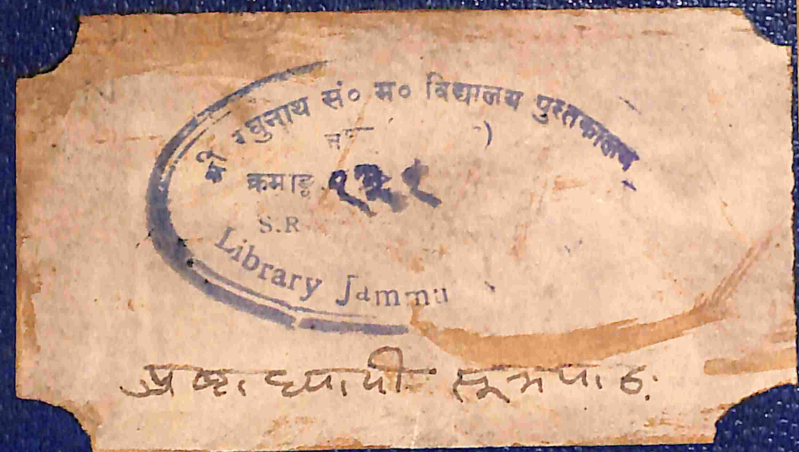 श्री रघुनाथ सं० म० विद्यालय पुस्तकालय
क्रमाङ्क
S.R
Library Jammu
अष्टाध्यायी सूत्रपाठः